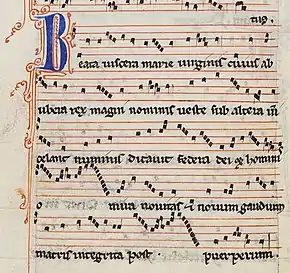 tus.
Beata viscera marie virginis cuius ad
ubera rex magni nominis veste sub altera
celans numinis dictavit federa dei et homini
o mira novitas et novum gaudium
matris integrita post puerperium.